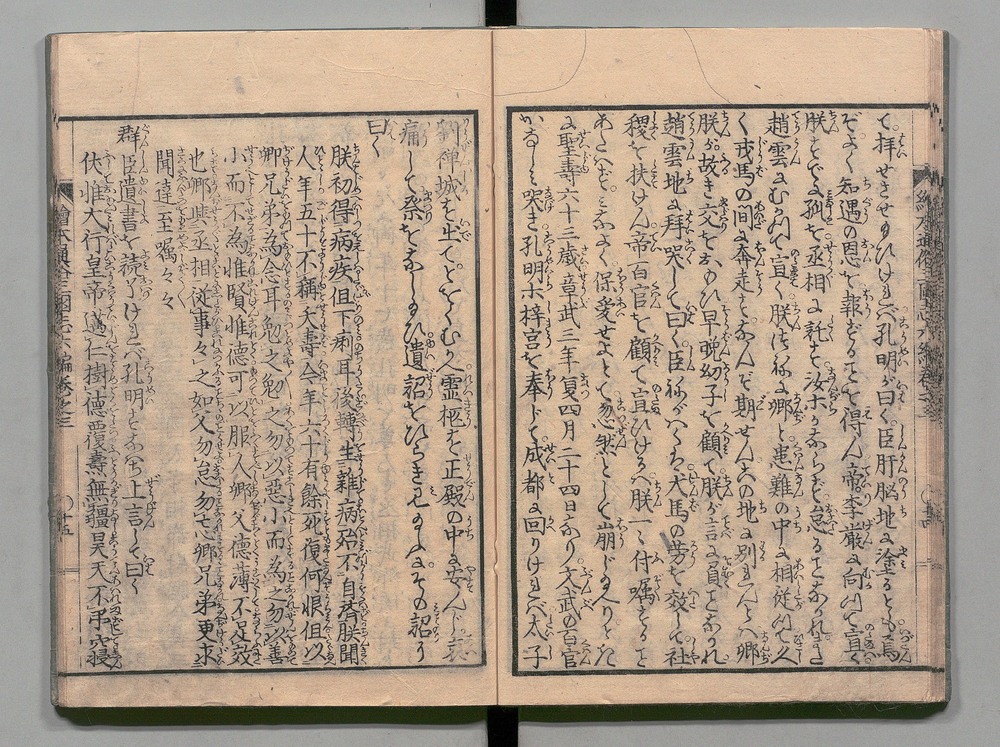 て拝せさせ玉ひければ孔明が曰く臣肝脳地に塗るとも焉
ぞよく知遇の恩を報ずることを得ん帝李厳に向つて宣く
朕すでに孤を丞相に託す汝ホかならず怠ることなかれまた
趙雲にむかつて宣く朕はじめ卿と患難の中に相従つて久
く戎馬の間に奔走すなんぞ期せんこの地に別れんとハ卿
朕が故き交をおもひ早晩幼子を顧て朕が言に負ことなかれ
趙雲地に拝哭して曰く臣ねがハくハ犬馬の労を效して社
稷を扶けん帝百官を顧て宣ひけるハ朕一々付嘱すること
あたハずミなよく保愛せよとて忽然として崩じ玉へりとき
に聖壽六十三歳章武三年夏四月二十四日なり文武の百官
かなしミ哭き孔明ホ梓宮を奉じて成都に回りけれバ太子
劉禅城を出てこれをむかへ霊柩を正殿の中に安んじ哀
痛して祭をなし玉ひ遺詔をひらき見玉ふにその詔に
曰く
朕初得病疾但下利耳後轉生雜病殆不自濟朕聞
人年五十不稱夭壽今年六十有餘死復何恨但以
卿兄弟為念耳勉之勉之勿以惡小而為之勿以善
小而不為惟賢惟德可以服人卿父德薄不足效
也卿與丞相從事々之如父勿怠勿忘卿兄弟更求
聞達至囑々々
群臣遺書を読了けれバ孔明すなハち上言して曰く
伏惟大行皇帝邁仁樹德覆壽無疆昊天不弔寢
繪本通俗三國志六編巻之三